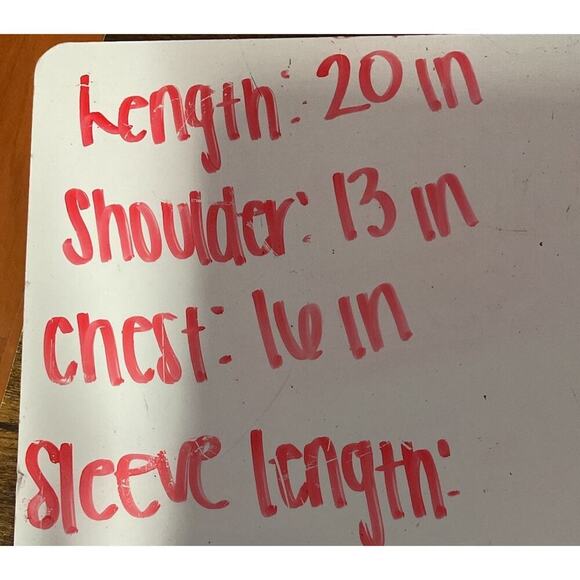 Length: 20 in
Shoulder: 13 in
Chest: 16 in
Sleeve Length: